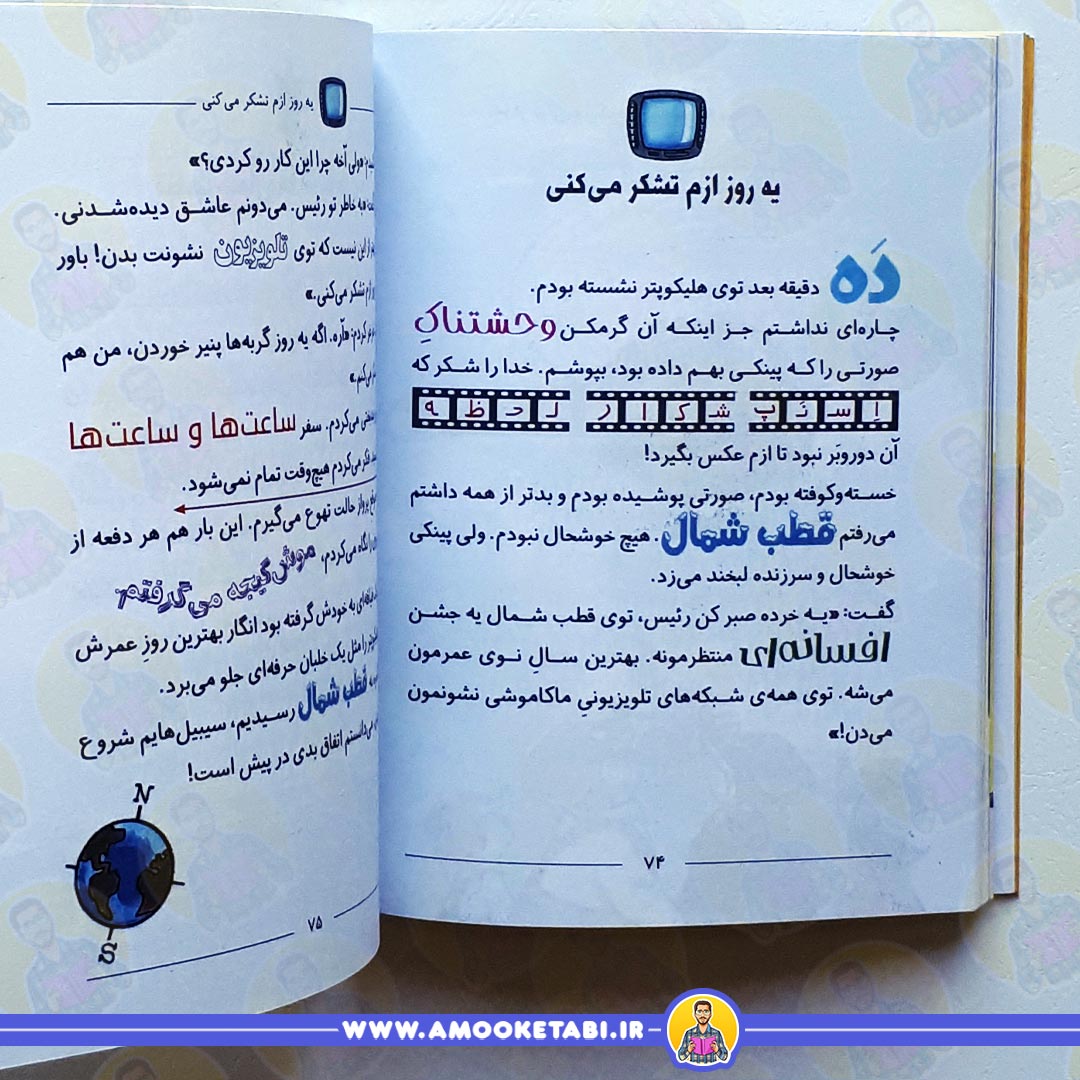 یه روز ازم تشکر می‌کنی
دَه دقیقه بعد توی هلیکوپتر نشسته بودم.
چاره‌ای نداشتم جز اینکه آن گرمکن وحشتناکِ
صورتی را که پینکی بهم داده بود، بپوشم. خدا را شکر که
اِسنَپ شکار لحظه
آن دوروبَر نبود تا ازم عکس بگیرد!
خسته‌وکوفته بودم، صورتی پوشیده بودم و بدتر از همه داشتم
می‌رفتم قطب شمال. هیچ خوشحال نبودم. ولی پینکی
خوشحال و سرزنده لبخند می‌زد.
گفت: «یه خرده صبر کن رئیس، توی قطب شمال یه جشن
افسانه‌ای منتظرمونه. بهترین سالِ نوی عمرمون
می‌شه. توی همه‌ی شبکه‌های تلویزیونیِ ماکاموشی نشونمون
می‌دن!»
۷۴
یه روز ازم تشکر می‌کنی
«ولی آخه چرا این کار رو کردی؟»
«به خاطر تو رئیس. می‌دونم عاشق دیده‌شدنی.
از این نیست که توی تلویزیون نشونت بدن! باور
ازم تشکر می‌کنی.»
«آره. اگه یه روز گربه‌ها پنیر خوردن، من هم
می‌کردم. سفر ساعت‌ها و ساعت‌ها
فکر می‌کردم هیچ‌وقت تمام نمی‌شود.
پرواز حالت تهوع می‌گیرم. این بار هم هر دفعه از
نگاه می‌کردم، موش‌گیجه می‌گرفتم!
به خودش گرفته بود انگار بهترین روزِ عمرش
را مثل یک خلبان حرفه‌ای جلو می‌برد.
قطب شمال رسیدیم، سیبیل‌هایم شروع
می‌دانستم اتفاق بدی در پیش است!
N
S
۷۵
WWW.AMOOKETABI.IR